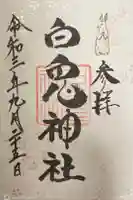 参拝
白兎神社
令和三年九月二十五日